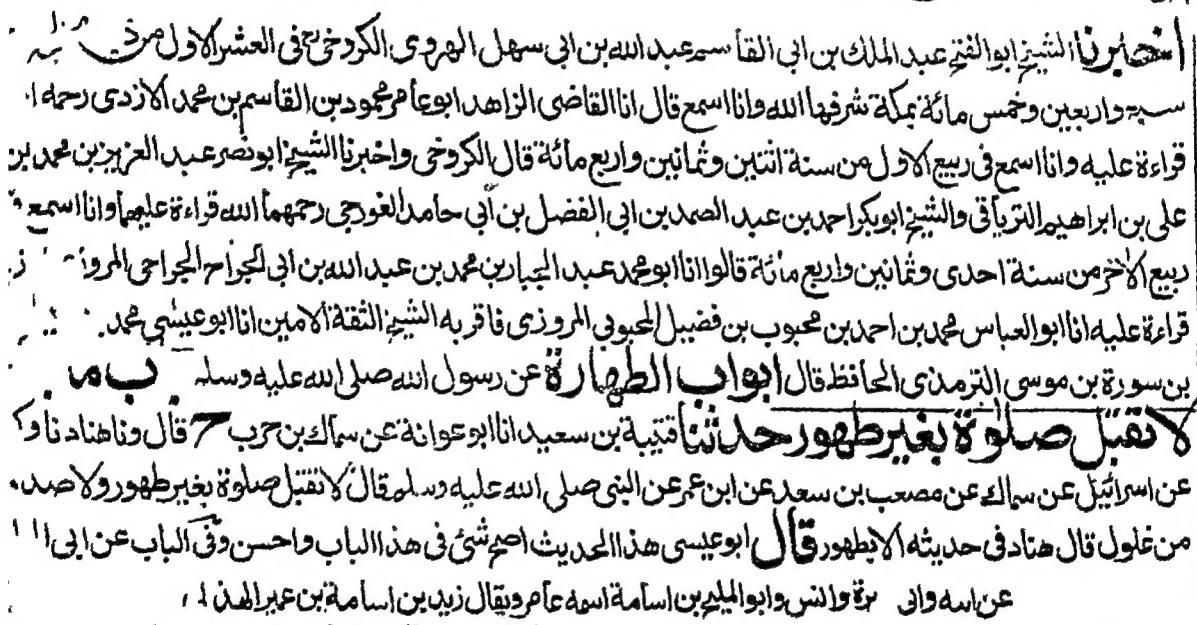 اخبرنا الشيخ ابو الفتح عبد الملك بن ابى القاسم عبد الله بن ابى سهل الهروى الكروخى فى العشر الاول من ذى
سبع واربعين وخمس مائة بمكة شرفها الله وانا اسمع قال انا القاضى الزاهد ابو عامر محمود بن القاسم بن محمد الازدى رحمه
قراءة عليه وانا اسمع فى ربيع الاول من سنة اثنتين وثمانين واربع مائة قال الكروخى واخبرنا الشيخ ابو نصر عبد العزيز بن محمد بن
على بن ابراهيم الترياقى والشيخ ابو بكر احمد بن عبد الصمد بن ابى الفضل بن أبي حامد الغورجى رحمهما الله قراءة عليهما وانا اسمع
ربيع الآخر من سنة احدى وثمانين واربع مائة قالوا انا ابو محمد عبد الجبار بن محمد بن عبد الله بن ابى الجراح الجراحى
قراءة عليه انا ابو العباس محمد بن احمد بن محبوب بن فضيل المحبوبى المروزى فاقر به الشيخ الثقة الامين انا ابو عيسى محمد
بن سورة بن موسى الترمذى الحافظ قال ابواب الطهارة عن رسول الله صلى الله عليه وسلم
لا تقبل صلوة بغير طهور حدثنا قتيبة بن سعيد انا ابو عوانة عن سماك بن حرب ح قال ونا هناد نا
عن اسرائيل عن سماك عن مصعب بن سعد عن ابن عمر عن النبى صلى الله عليه وسلم قال لا تقبل صلوة بغير طهور ولا
من غلول قال هناد فى حديثه الا بطهور قال ابو عيسى هذا الحديث اصح شئ فى هذا الباب واحسن وفى الباب عن ابى
عن ابيه وابى وانس وابو المليح بن اسامة اسمه عامر ويقال زيد بن اسامة بن عمير